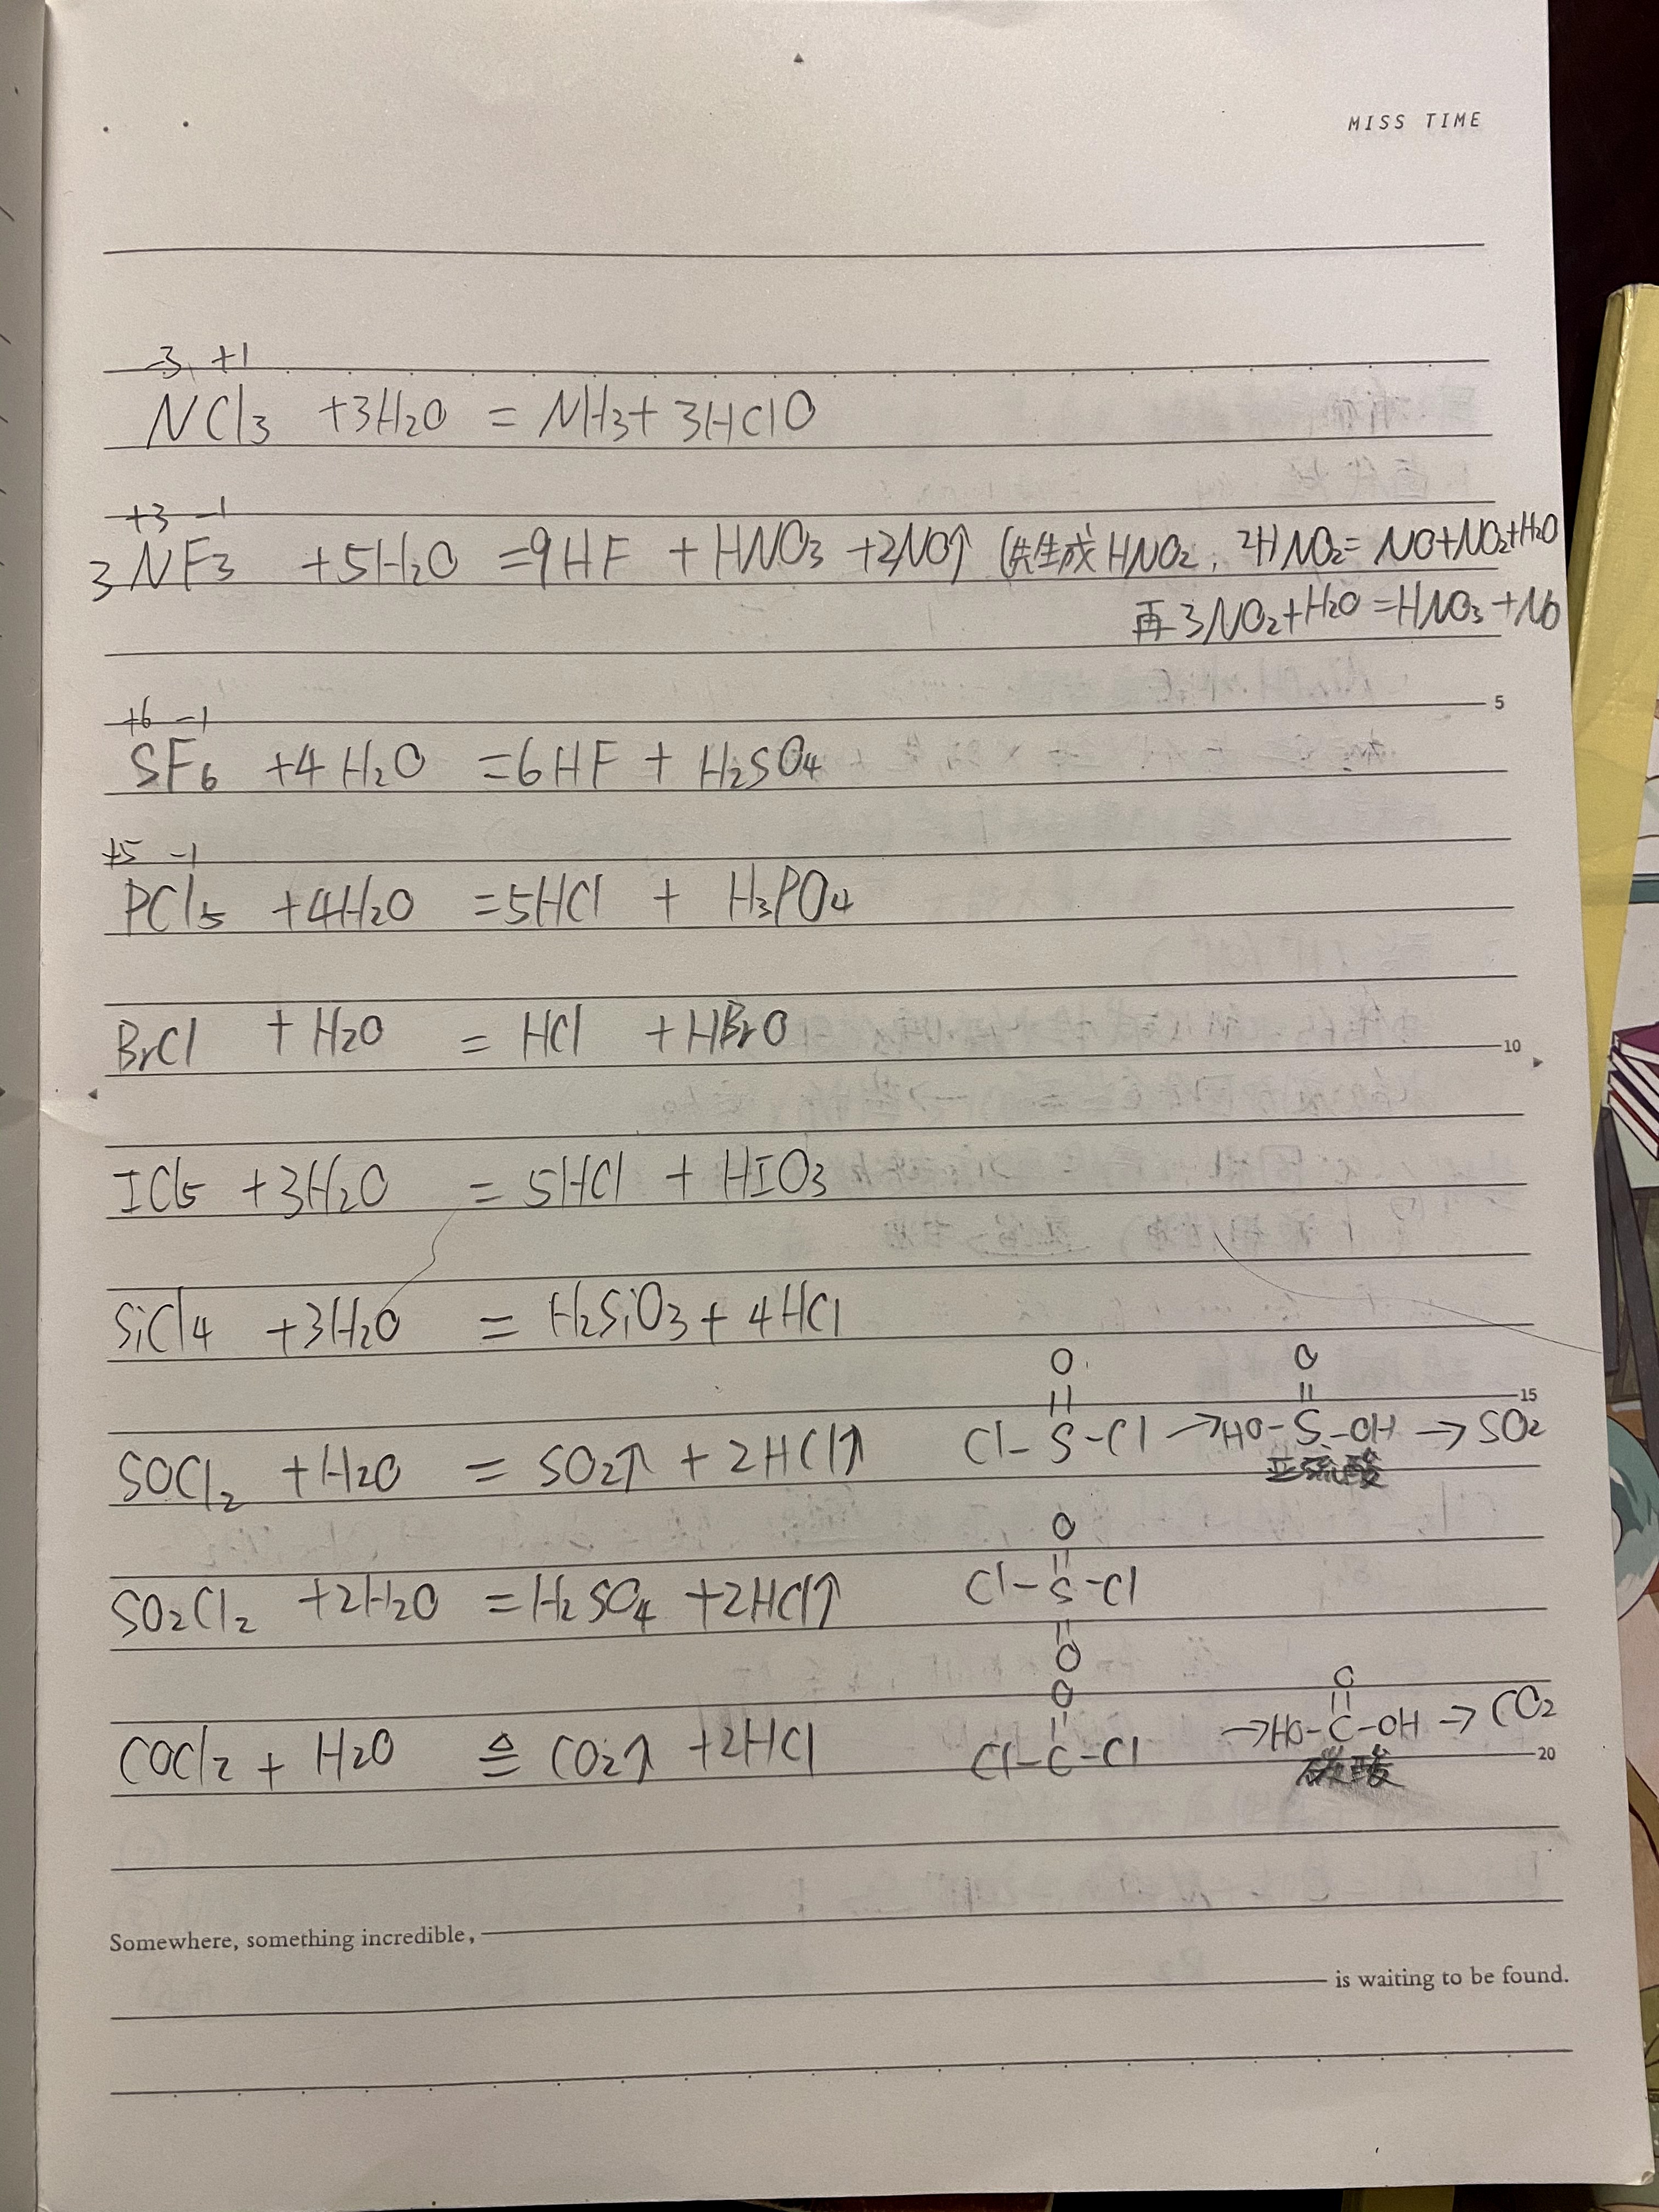 MISS TIME
-3 +1
NCl3 +3H2O = NH3+ 3HClO
+3 -1
3NF3 +5H2O =9HF + HNO3 +2NO↑ (先生成HNO2, 2HNO2= NO+NO2+H2O
再3NO2+H2O =HNO3 +NO
+6 -1
5
SF6 +4H2O =6HF + H2SO4
+5 -1
PCl5 +4H2O =5HCl + H3PO4
BrCl + H2O = HCl +HBrO
10
ICl5 +3H2O = 5HCl + HIO3
SiCl4 +3H2O = H2SiO3+ 4HCl
O O
|| ||
15
SOCl2 +H2O = SO2↑ + 2HCl↑ Cl-S-Cl →HO-S-OH → SO2
亚硫酸
O
||
SO2Cl2 +2H2O =H2SO4 +2HCl↑ Cl-S-Cl
||
O
O O
|| ||
COCl2 + H2O ≙ CO2↑ +2HCl Cl-C-Cl →HO-C-OH → CO2
20
碳酸
Somewhere, something incredible,
is waiting to be found.